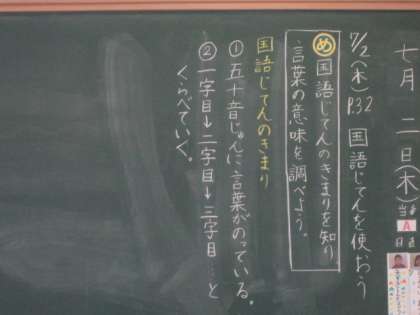 七月二日(木)
当番
A
日直
7/2(木) P.32 国語じてんを使おう
め 国語じてんのきまりを知り
言葉の意味を調べよう。
国語じてんのきまり
①五十音じゅんに言葉がのっている。
②一字目→二字目→三字目…と
くらべていく。